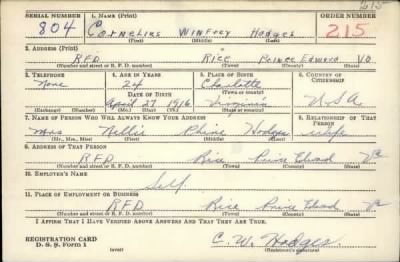 215
SERIAL NUMBER 1. NAME (Print) ORDER NUMBER
804 Cornelius Winfrey Hodges 215
(First) (Middle) (Last)
2. ADDRESS (Print)
RFD Rice Prince Edward Va
(Number and street or R. F. D. number) (Town) (County) (State)
3. TELEPHONE 4. AGE IN YEARS 5. PLACE OF BIRTH 6. COUNTRY OF CITIZENSHIP
None 24 Charlotte
DATE OF BIRTH (Town or county)
April 27 1916 Virginia U.S.A
(Exchange) (Number) (Mo.) (Day) (Yr.) (State or country)
7. NAME OF PERSON WHO WILL ALWAYS KNOW YOUR ADDRESS 8. RELATIONSHIP OF THAT PERSON
Mrs Nellie Hodges wife
(Mr., Mrs., Miss) (First) (Middle) (Last)
9. ADDRESS OF THAT PERSON
RFD Rice Prince Edward Va
(Number and street or R. F. D. number) (Town) (County) (State)
10. EMPLOYER'S NAME
Self
11. PLACE OF EMPLOYMENT OR BUSINESS
RFD Rice Prince Edward Va
(Number and street or R. F. D. number) (Town) (County) (State)
I AFFIRM THAT I HAVE VERIFIED ABOVE ANSWERS AND THAT THEY ARE TRUE.
REGISTRATION CARD C. W. Hodges
D. S. S. Form 1 (over) (Registrant's signature)